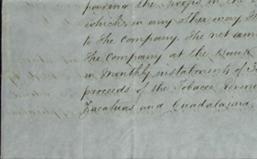 the profits in the
which in any other way th
to the Company. The net am
the Company at the Bank
in Monthly instalments of
proceeds of the Tobacco
Zacatecas and Guadalajara.